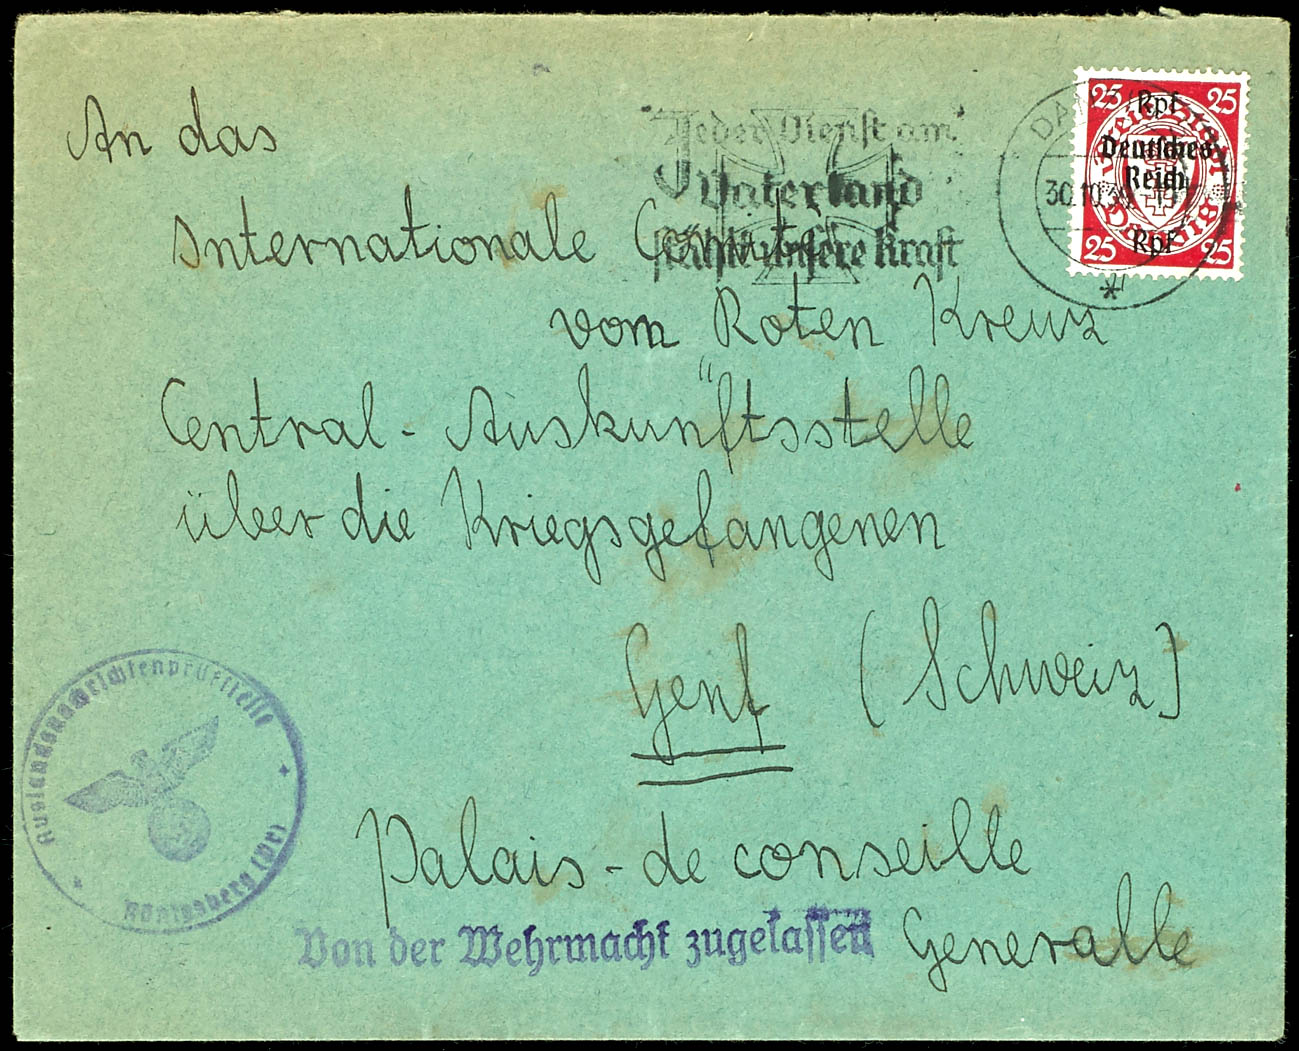 An das
Internationale Comité
vom Roten Kreuz
Central-Auskunftsstelle
über die Kriegsgefangenen
Genf (Schweiz)
Palais-de conseille
Generalle
"Jeder Dienst am
Vaterland
stählt unsere Kraft
30.10.39
*
25 Rpf 25
Deutsches
Reich
25 Rpf 25
Freie Stadt Danzig
Auslandsnachrichtenprüfstelle
Königsberg (Pr)
Von der Wehrmacht zugelassen